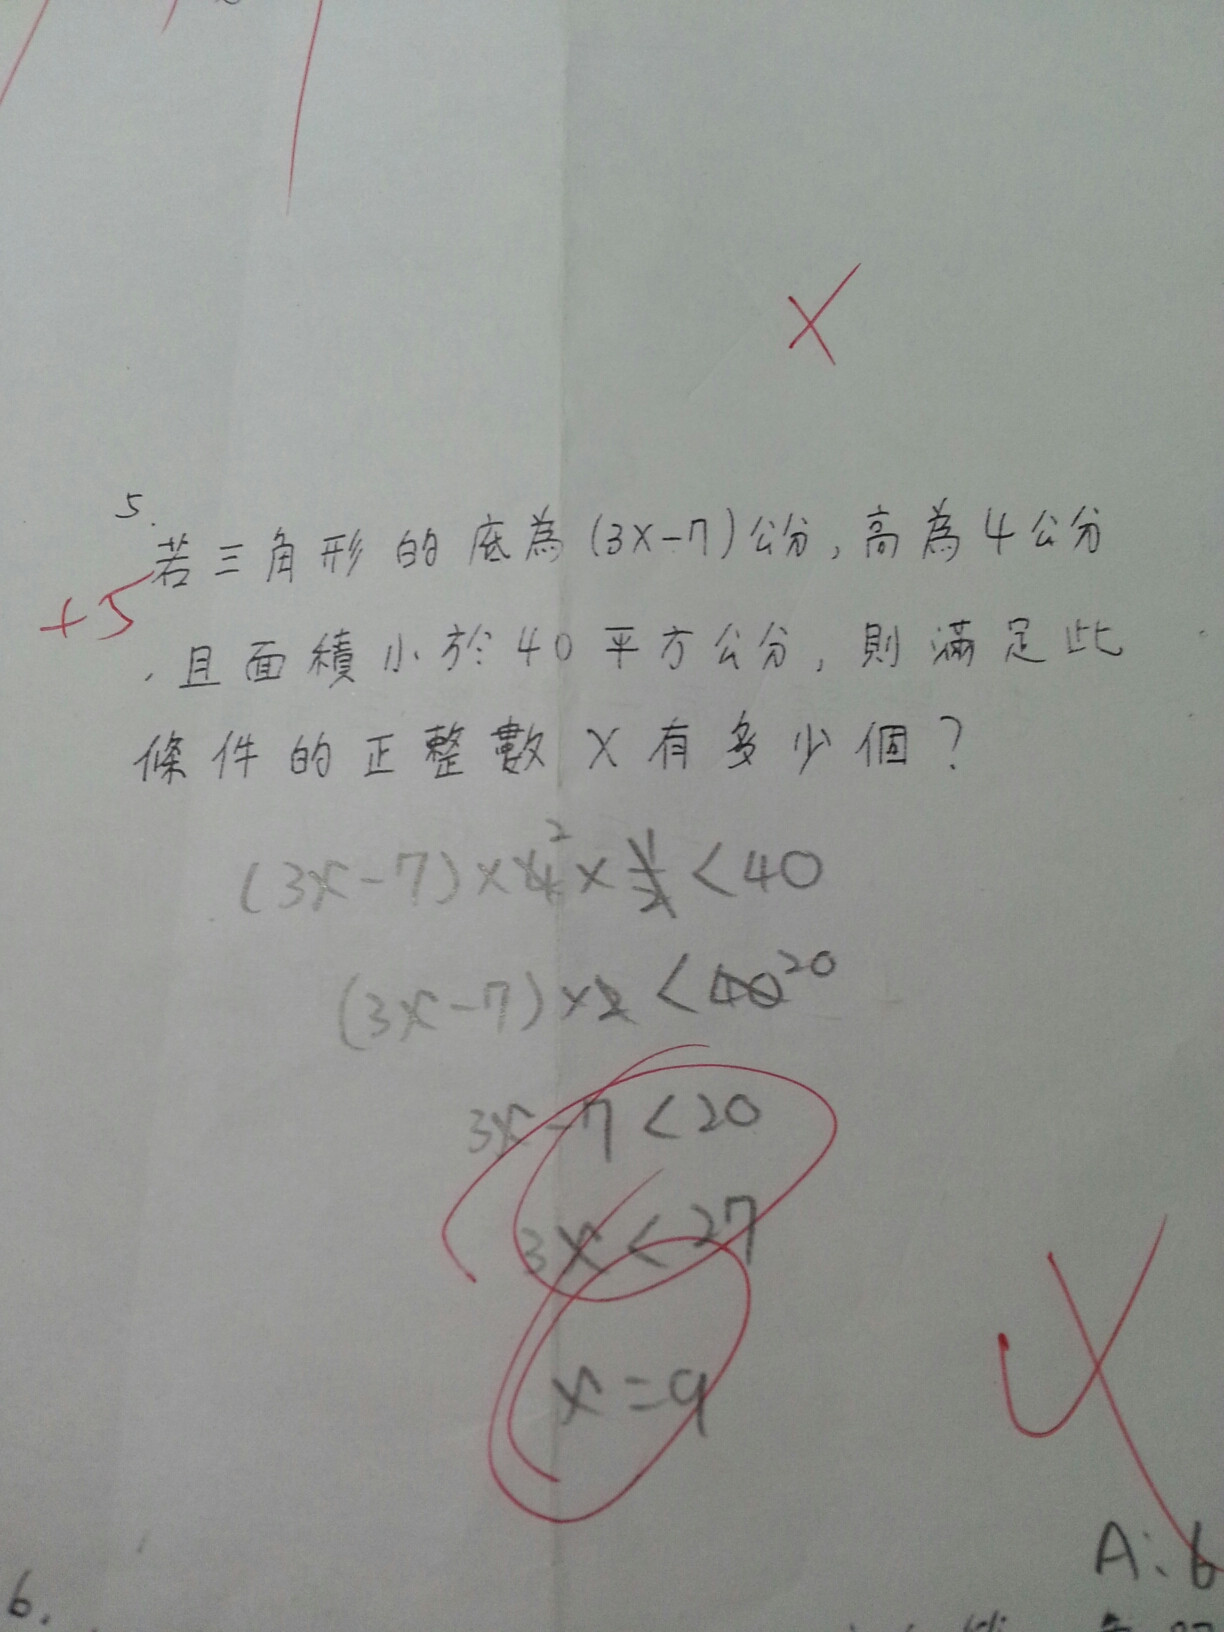 5.
若三角形的底為(3x-7)公分,高為4公分
+5
,且面積小於40平方公分,則滿足此
條件的正整數x有多少個?
(3x-7)×4²×½<40
(3x-7)×2<40 20
3x-7<20
3x<27
x=9
A:6
6.